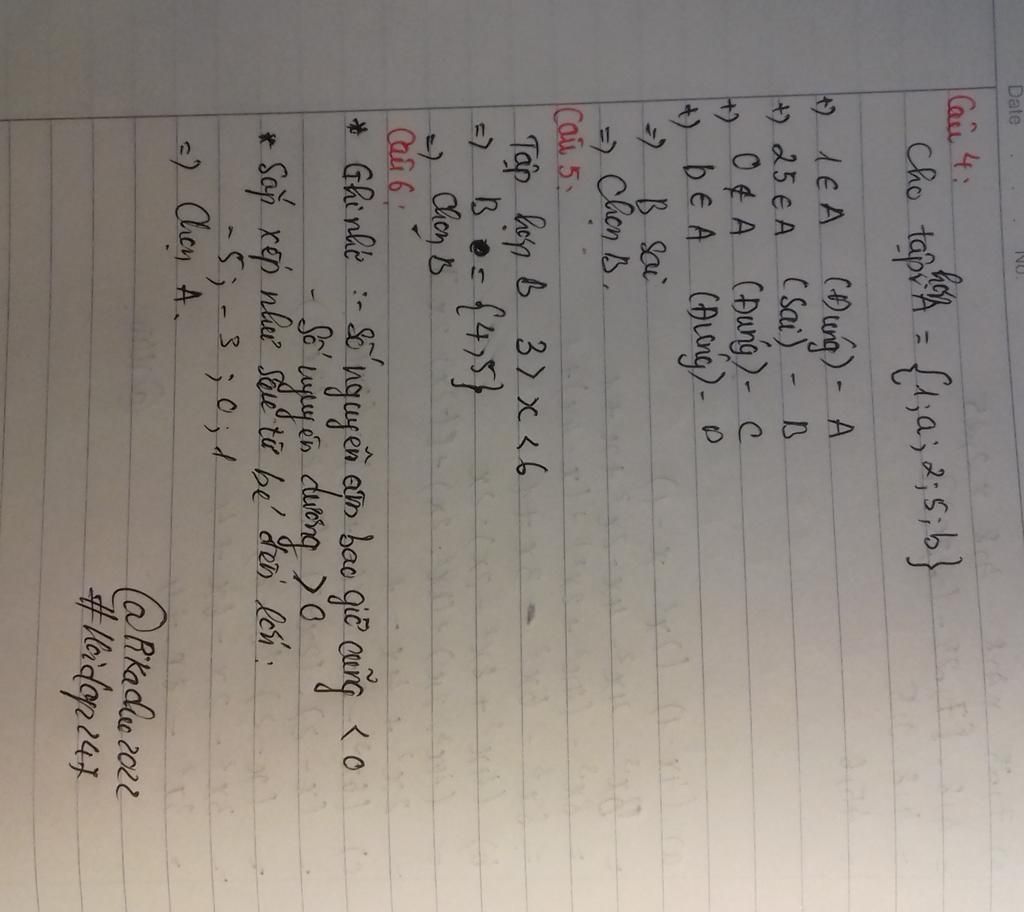 Date
No.
Câu 4:
Cho tập hợp A = {1; a; 2; 5; b}
+) 1 ∈ A (Đúng) - A
+) 25 ∈ A (Sai) - B
+) 0 ∉ A (Đúng) - C
+) b ∈ A (Đúng) - D
=) B sai
=) Chọn B.
Câu 5:
Tập hợp B 3 > x < 6
=) B = {4; 5}
=) Chọn B
Câu 6:
* Ghi nhớ :- Số nguyên âm bao giờ cũng < 0
- Số nguyên dương > 0
* Sắp xếp như sau từ bé đến lớn:
- 5; - 3 ; 0; 1
=) Chọn A.
@Pikachu2022
#Hoidap247